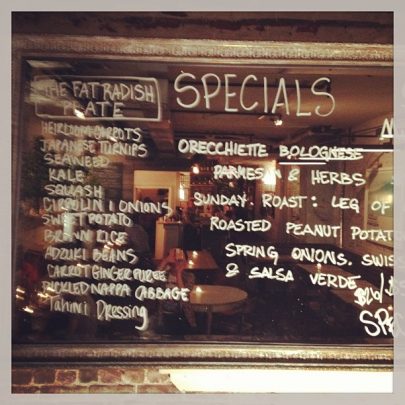 THE FAT RADISH
PLATE
HEIRLOOM CARROTS
JAPANESE TURNIPS
SEAWEED
KALE
SQUASH
CIPOLLIN I ONIONS
SWEET POTATO
BROWN RICE
ADZUKI BEANS
CARROT GINGER PUREE
PICKLED NAPPA CABBAGE
Tahini Dressing
SPECIALS
ORECCHIETTE BOLOGNESE
PARMESAN & HERBS
SUNDAY. ROAST: LEG OF
ROASTED PEANUT POTAT
SPRING ONIONS. SWIS
& SALSA VERDE